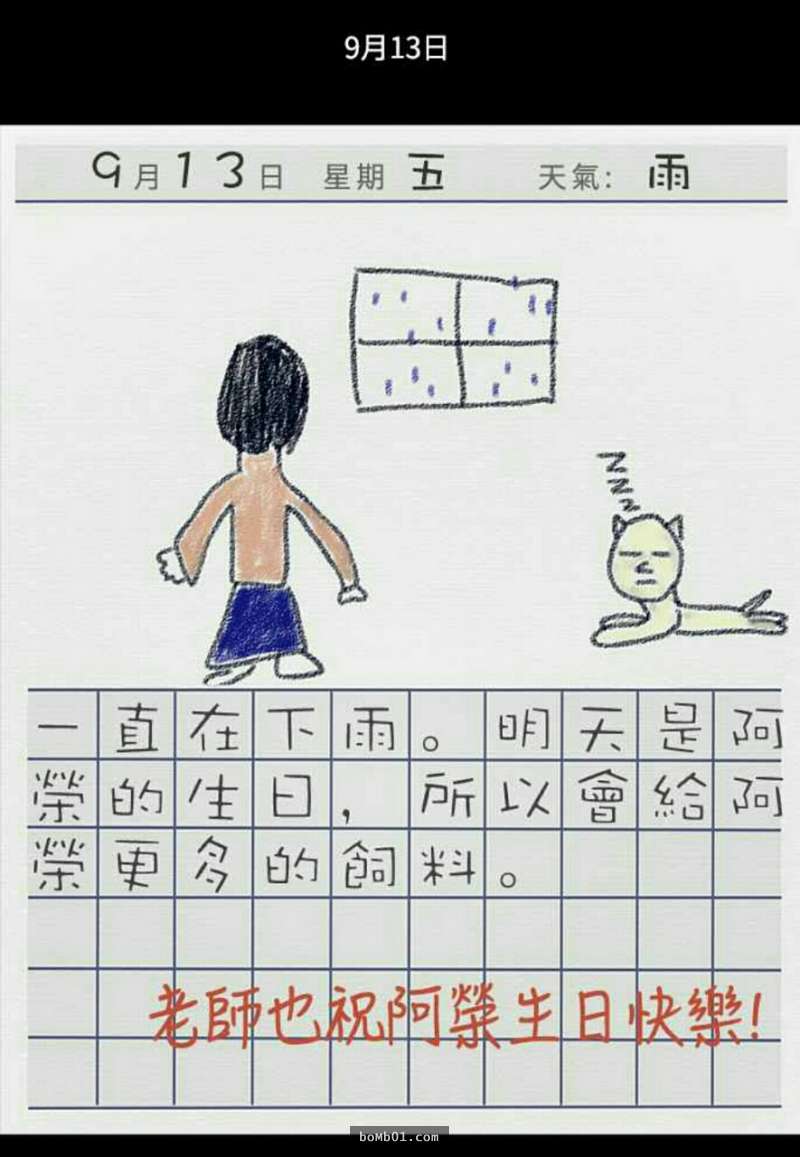 9月13日
9月13日 星期 五 天氣: 雨
z
z
z
一直在下雨。明天是阿
榮的生日,所以會給阿
榮更多的飼料。
老師也祝阿榮生日快樂!
boMb01.com